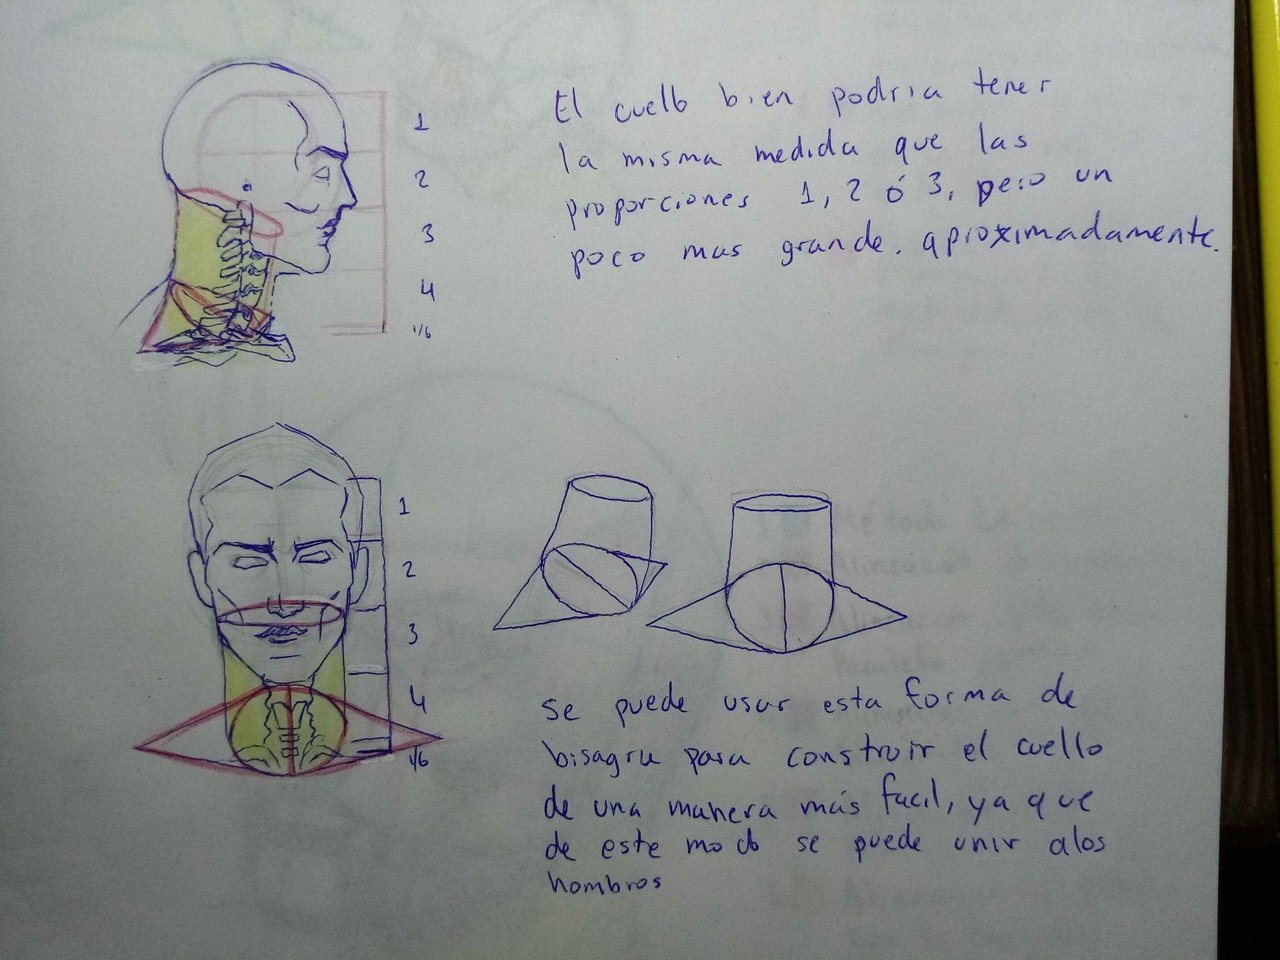 1
2
3
4
1/6
El cuello bien podria tener
la misma medida que las
proporciones 1, 2 ó 3, pero un
poco mas grande. aproximadamente.
1
2
3
4
1/6
se puede usar esta forma de
bisagra para construir el cuello
de una manera más facil, ya que
de este modo se puede unir alos
hombros